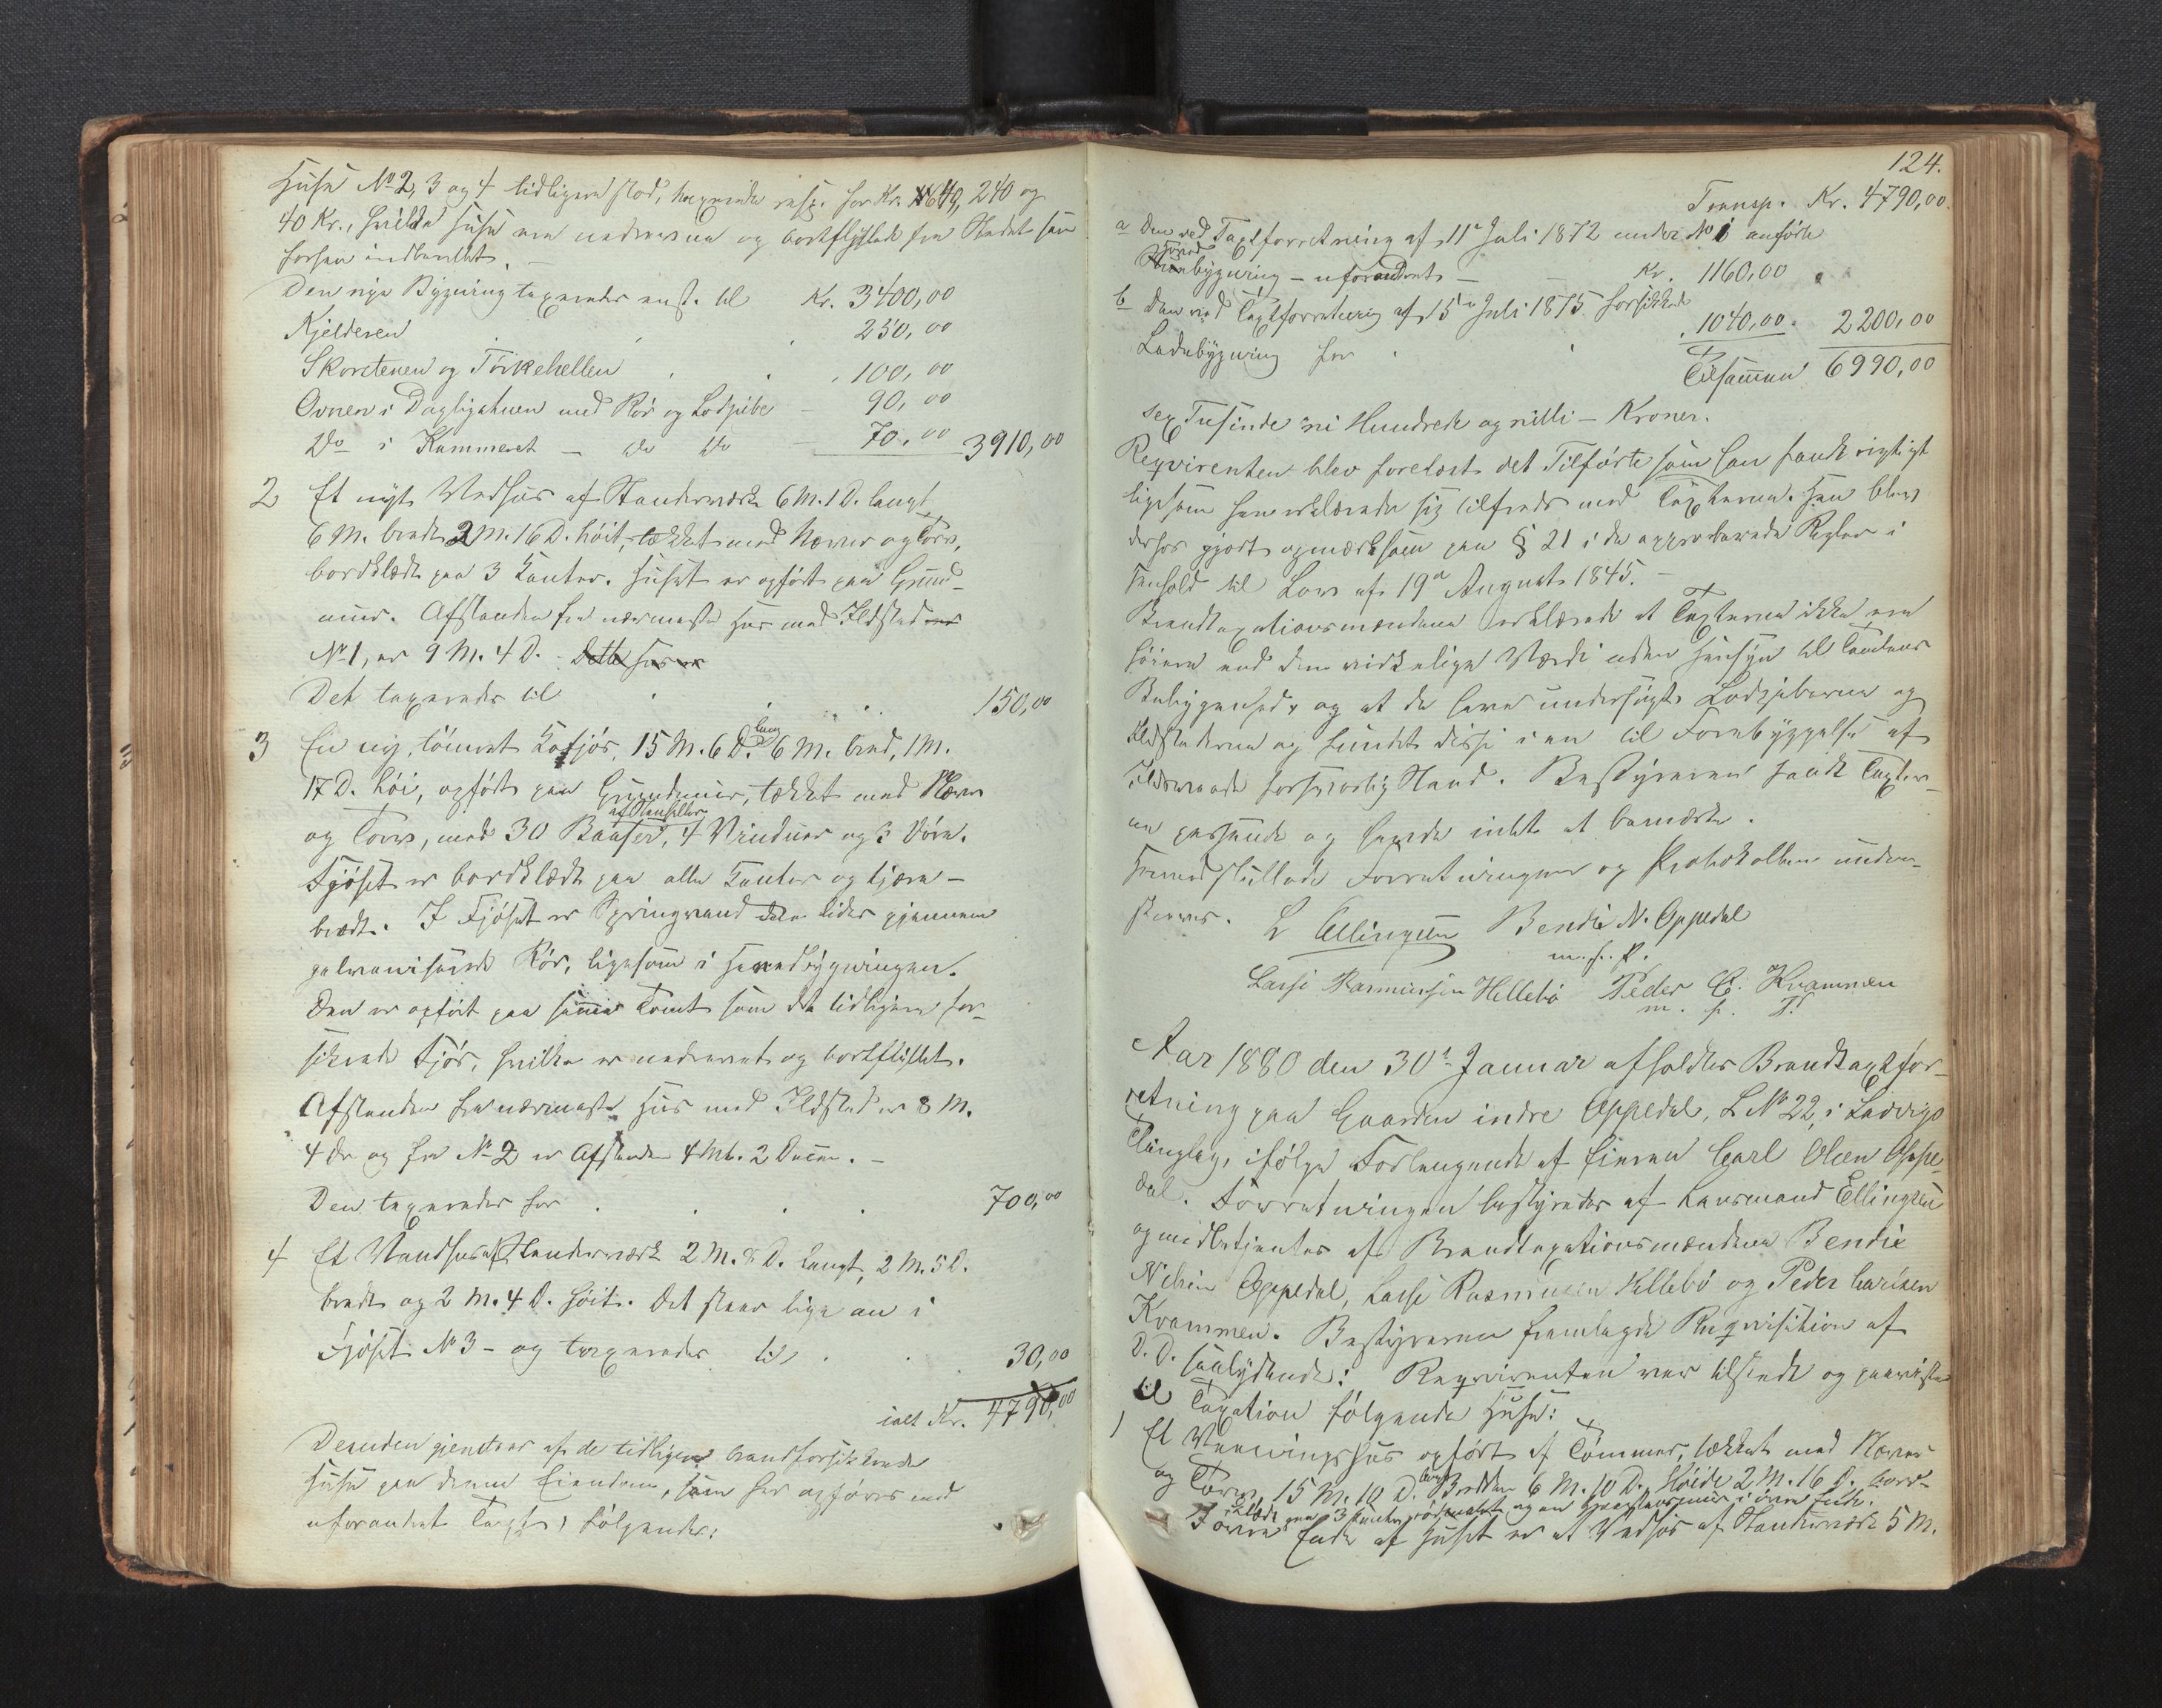 Huse No 2, 3 og 4 tidligere stod, taxerede resp. for Kr. 640, 240 og
40 Kr., hvilke Huse ere nedrevne og bortflyttede fra Stedet
forsaavidt
Den nye Bygning taxeredes til Kr. 3400,00
Kjelderen 250,00
Skorstenen og Törkehellen 100,00
Ovnen i Dagligstuen med Rör og Lodpibe 90,00
Do i Kammeret - do do 70,00 3910,00
2 Et nyt Vedhus af Standerværk 6 M. 1 D. langt,
6 M. bredt 2 M. 16 D. höit, tækket med Næver og Torv,
bordklædt paa 3 Kanter. Huset er opfört paa Grund-
muur. Afstanden fra nærmeste Hus med Ildsted
No 1, er 9 M. 4 D. - Dette Hus er
Det taxeredes til 150,00
3 En ny, tömret Kofjös, 15 M. 6 D. lang 6 M. bred, 1 M.
17 D. höi, opfört paa Grundmur, tækket med Næver
og Torv, med 30 Baaser af Stenheller, 4 Vinduer og 3 Döre.
Fjöset er bordklædt paa alle Kanter og tjære-
bredt. I Fjöset er Springvand der ledes gjennem
galvaniserede Rör, ligesom i Hovedbygningen.
Den er opfört paa samme Tomt som det tidligere for-
sikrede Fjös, hvilke er nedrevet og bortflyttet.
Afstanden fra nærmeste Hus med Ildsted er 8 M.
4 D. og fra No 2 er Afstanden 4 Mt. 2 Decm. -
Den taxeredes for 700,00
4 Et Vandhus af Standerværk 2 M. 8 D. langt, 2 M. 5 D.
bredt og 2 M. 4 D. höit. Det staar lige an i
Fjöset No 3 - og taxeredes til 30,00
ialt Kr. 4790,00
Desuden gjenstaar af de tidligere brandforsikrede
Huse paa denne Eiendom, som her opföres med
uforandret Taxt, fölgende:
124.
Transp. Kr. 4790,00
a Den ved Taxtforretning af 11te Juli 1872 under No 1 anförte
bygning - uforandret - Kr. 1160,00
b Den ved Taxtforretning af 15de Juli 1875 forsikrede
Ladebygning for 1040,00. 2200,00
Tilsammen 6990,00
sex Tusinde ni Hundrede og nitti - Kroner.
Reqvirenten blev forelæst det Tilförte som han fandt rigtigt
ligesom han erklærede sig tilfreds med Taxterne. Han blev
derhos gjort opmærksom paa § 21 i de approberede Regler i
Henhold til Lov af 19de August 1845. -
Brandtaxationsmændene erklærede at Taxterne ikke ere
höiere end den virkelige Værdi uden Hensyn til Tomtens
Beliggenhed, og at de have undersögt Lodpiberne og
Ildstederne og fundet disse i en til Forebyggelse af
Ildsvaade forsvarlig Stand. Bestyreren fandt Taxter-
ne passende og havde intet at bemærke.
Hermed sluttedes Forretningen og Protokollen under-
skrives. L Ellingsen Bendix N. Oppedal
m. f. P.
Lasse Rasmussen Hillebö Peder C. Kvammen
m. f. P.
Aar 1880 den 30te Januar afholdtes Brandtaxtfor-
retning paa Gaarden indre Oppedal, L No 22, i Ladvigs
Thinglag, ifölge Forlangende af Eieren Carl Olsen Oppe-
dal. Forretningen bestyredes af Lensmand Ellingsen
og medbetjentes af Brandtaxationsmændene Bendix
Nilsen Oppedal, Lasse Rasmussen Hillebö og Peder Carlsen
Kvammen. Bestyreren fremlagde Reqvisition af
D. D. saalydende: Reqvirenten var tilstede og paaviste
til Taxation fölgende Huse:
1 Et Vaaningshus opfört af Tömmer, tækket med Næver
og Torv, 15 M. 10 D. langt, Bredden 6 M. 10 D., Höide 2 M. 16 D. bord-
klædt paa 3 Kanter, rödmalet, og en i övre Ende.
I övre Ende af Huset er et Vedhus af Standerværk 5 M.